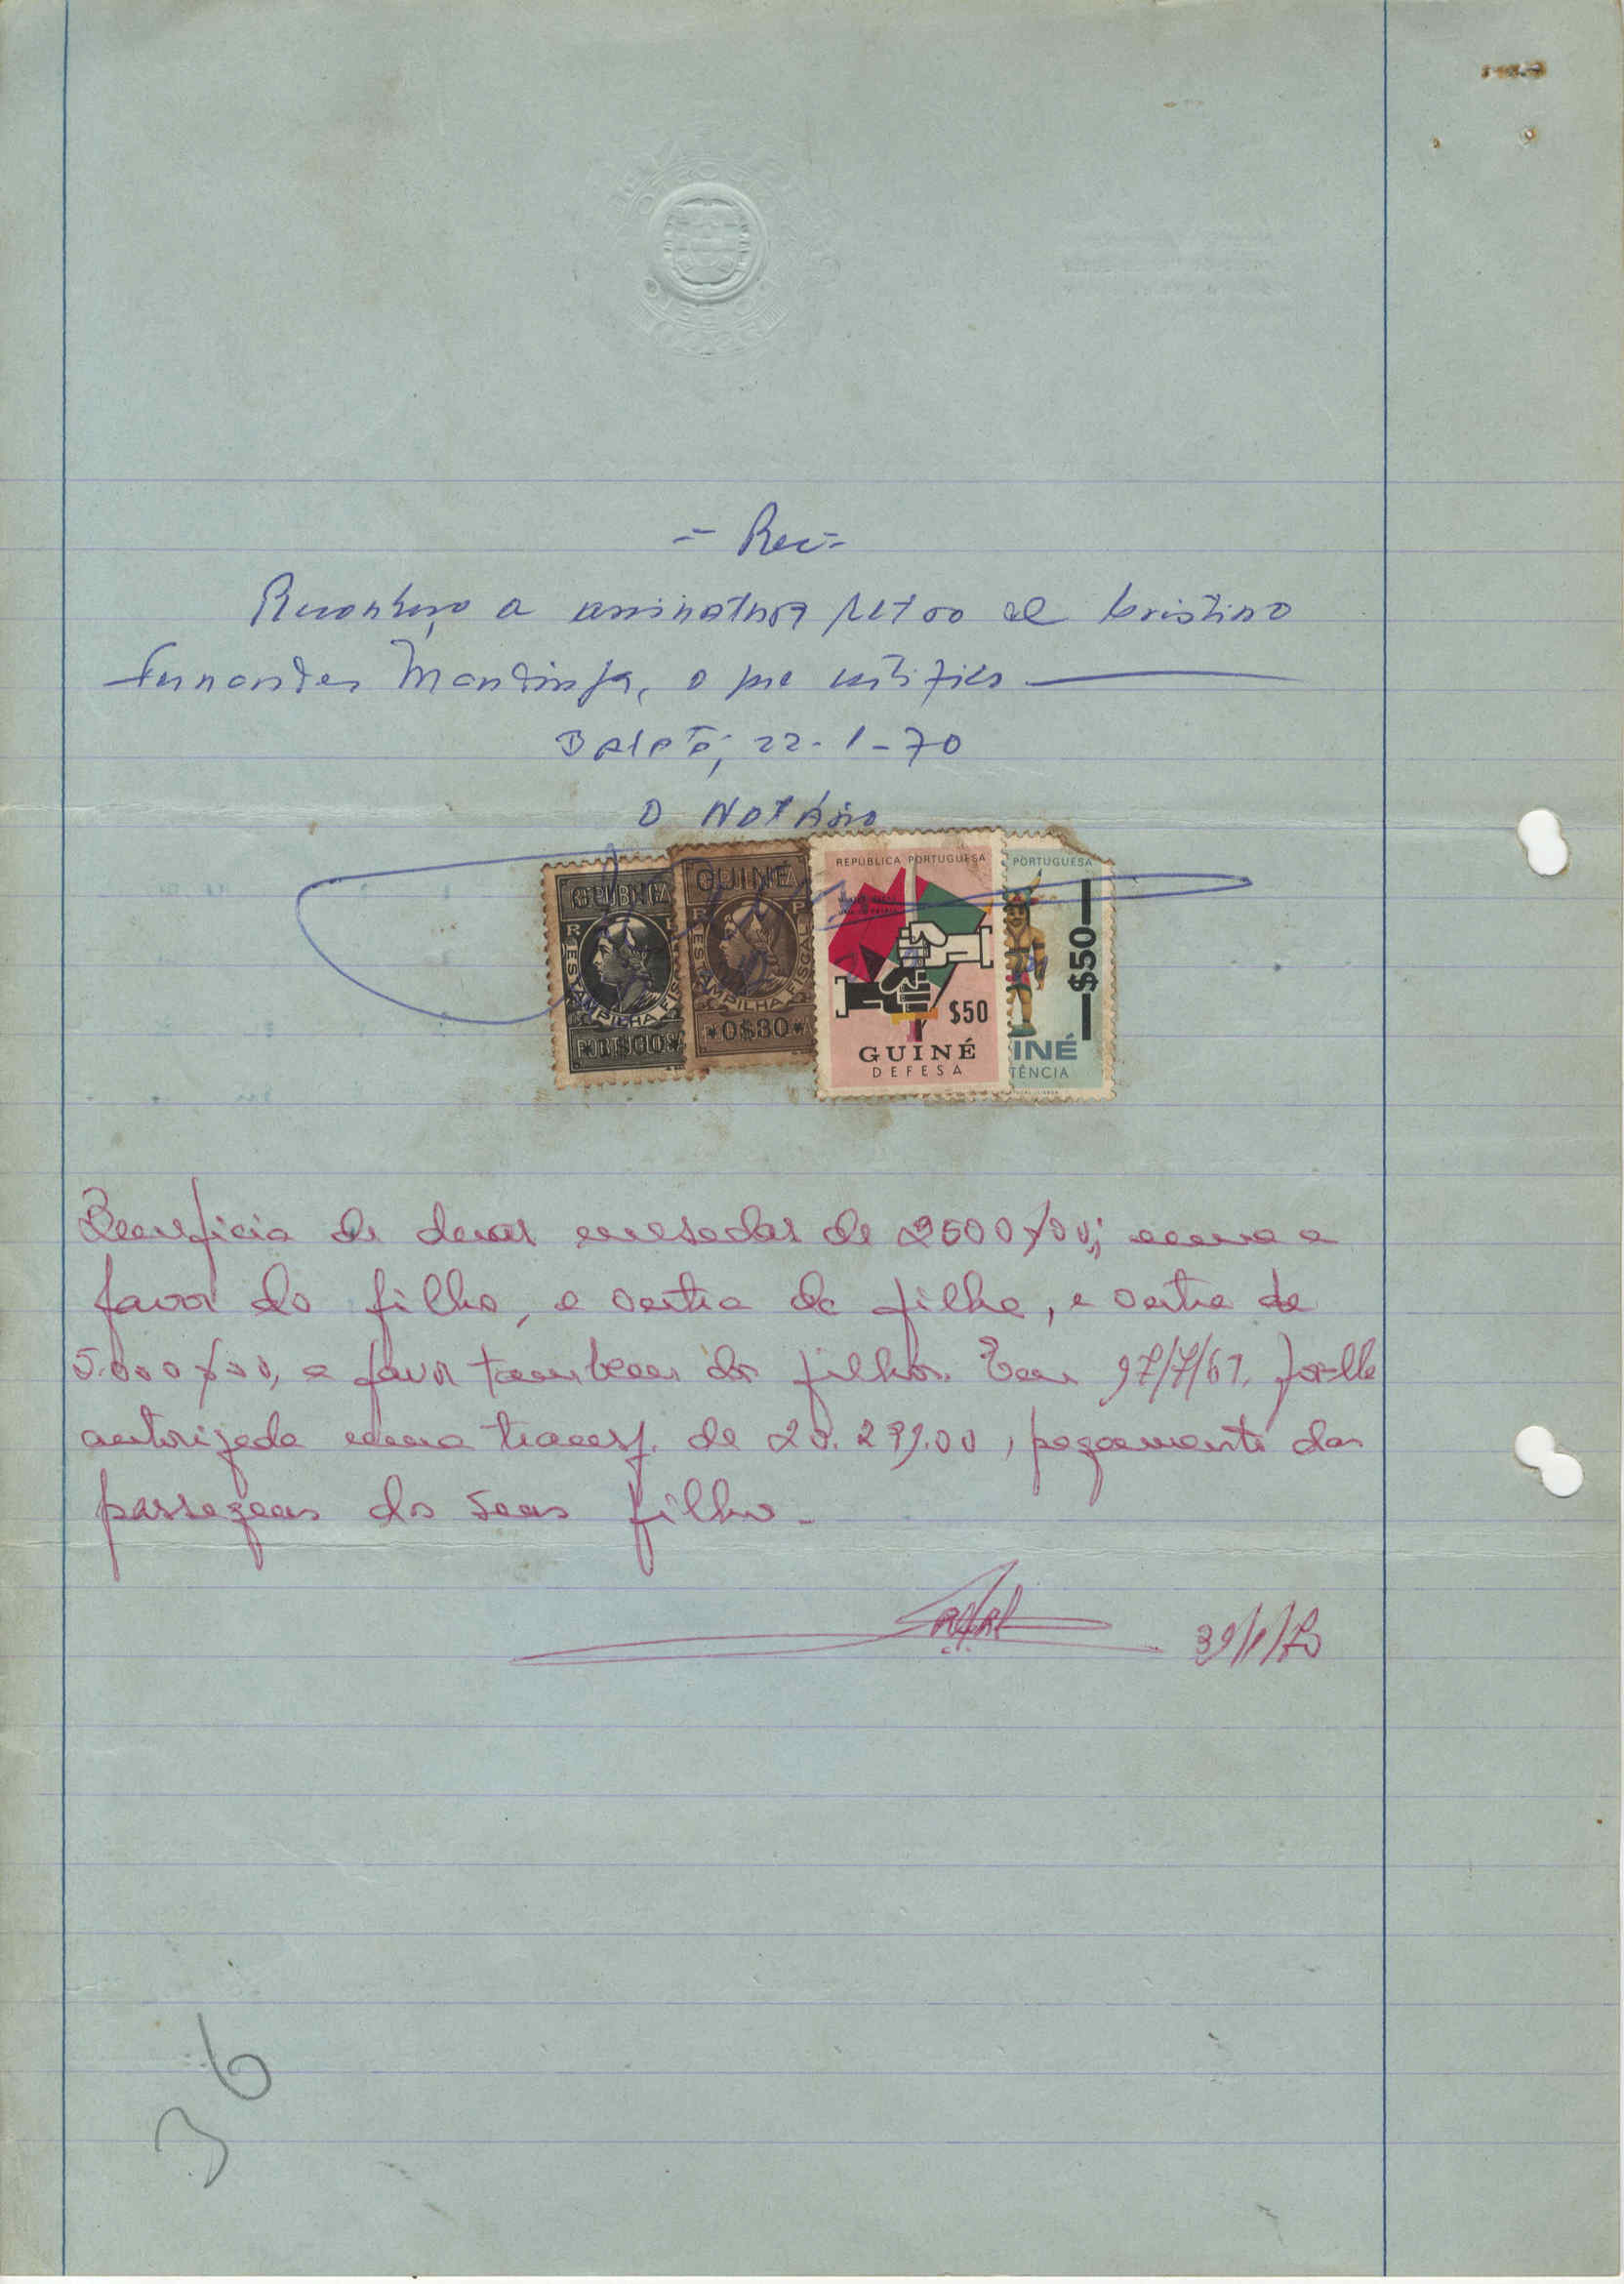 = Rec =
Reconheço a assinatura retro de Cristino
Fernandes Mandinga, o que certifico
Bafatá, 22-1-70
O Notário
GUINÉ
ESTAMPILHA FIS
GUINÉ
ESTAMPILHA FISCAL
*0$80*
REPÚBLICA PORTUGUESA
$50
GUINÉ
DEFESA
PORTUGUESA
$50
INÉ
TÊNCIA
Beneficia de duas mesadas de 2500$00; uma a
favor do filho, e outra da filha, e outra de
5.000$00, a favor tambem dos filhos. Em 97/7/69, foi-lhe
autorizada uma transf. de 20.299.00, pagamento das
passagens dos seus filhos.
/1/70
36